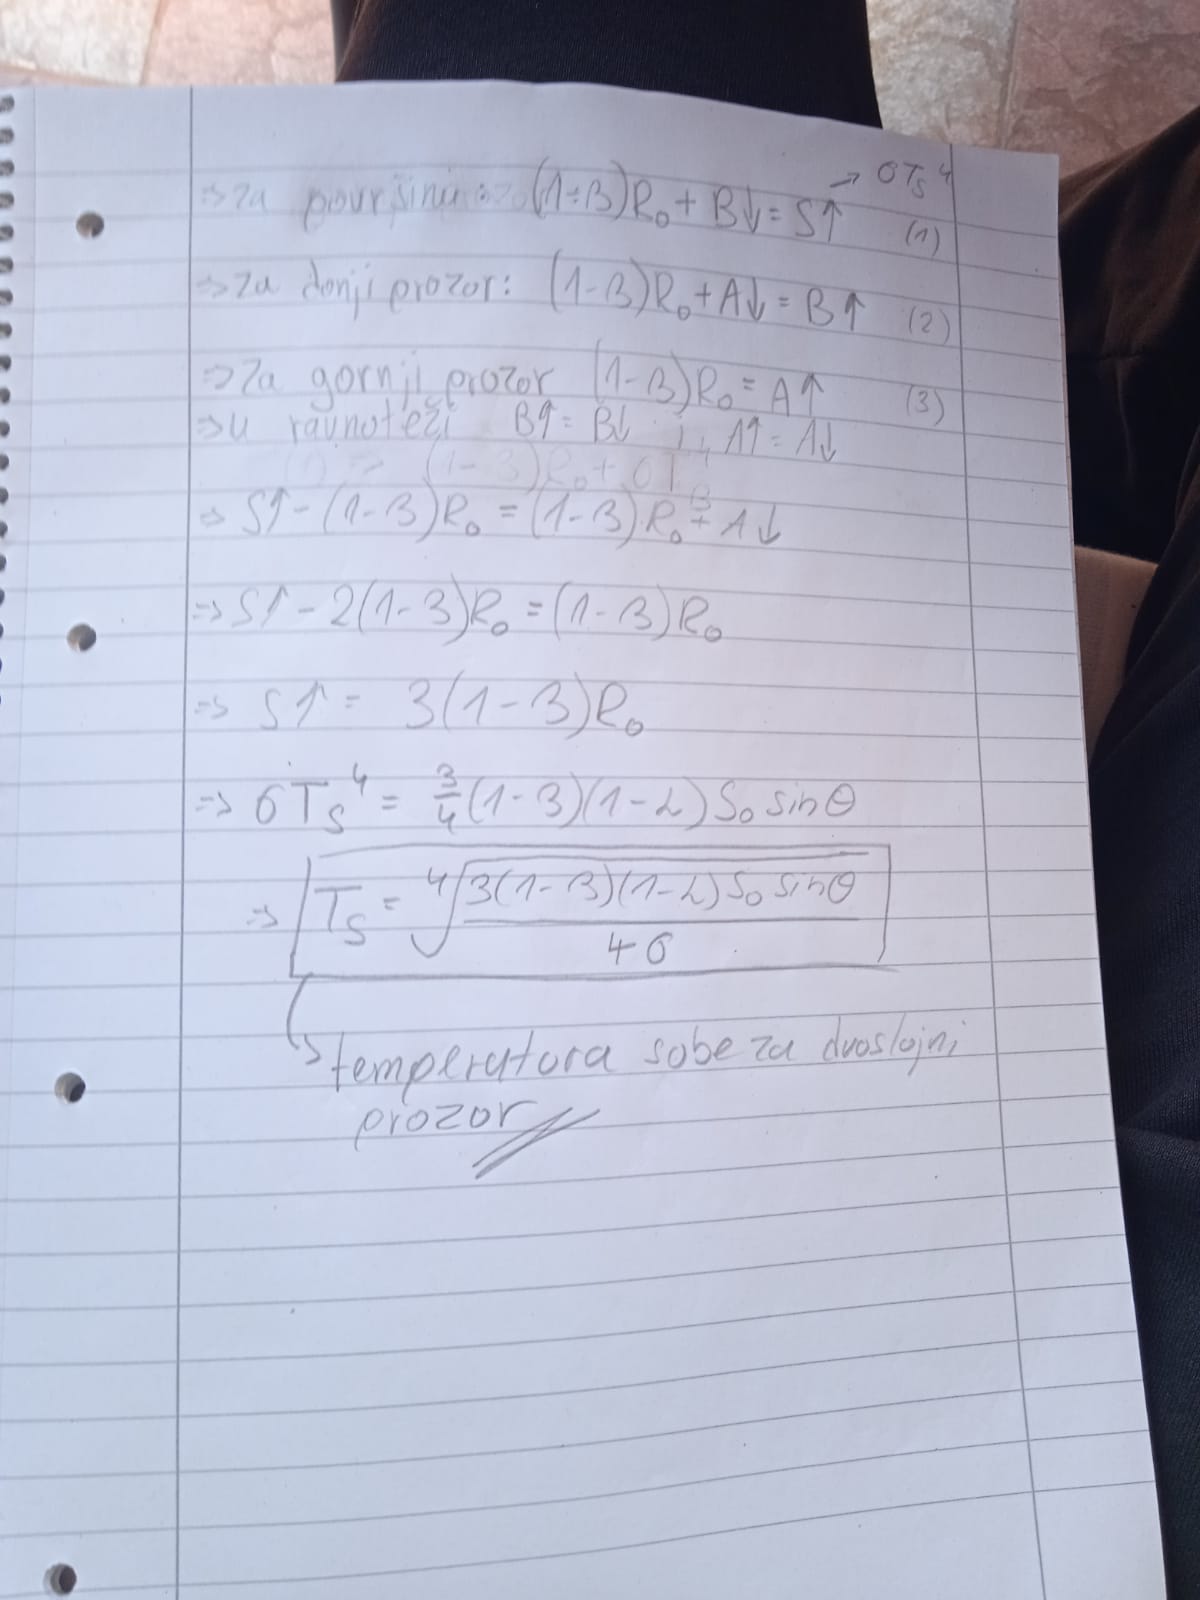 → σTs⁴
⇒ za površinu: (1-β)R₀ + B↓ = S↑ (1)
⇒ za donji prozor: (1-β)R₀ + A↓ = B↑ (2)
⇒ Za gornji prozor (1-β)R₀ = A↑ (3)
⇒ u ravnoteži B↑ = B↓ i A↑ = A↓
⇒ S↑ - (1-β)R₀ = (1-β)R₀ + A↓
⇒ S↑ - 2(1-β)R₀ = (1-β)R₀
⇒ S↑ = 3(1-β)R₀
⇒ σTs⁴ = 3/4 (1-β)(1-α) S₀ sinθ
⇒ Ts = ⁴√(3(1-β)(1-α) S₀ sinθ / 4σ)
→ temperatura sobe za dvoslojni
prozor